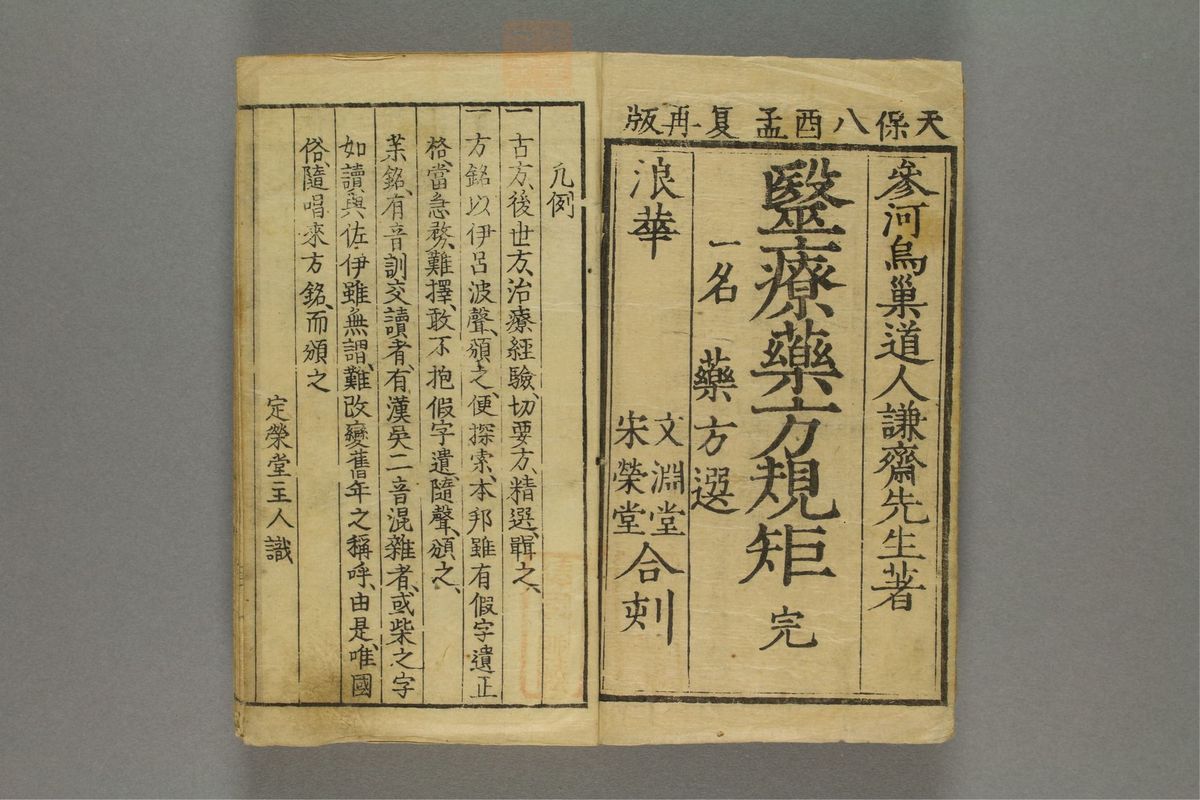 天保八酉孟夏再版
參河烏巢道人謙齋先生著
醫療藥方規矩 完
一名 藥方選
浪華 文淵堂
宋榮堂 合刻
凡例
一古方、後世方、治療経驗、切要方、精選、輯之、
一方銘以伊呂波聲、頒之、便探索、本邦雖有假字遺正
格、當急務、難擇、敢不抱假字遺、隨聲、頒之、
某銘、有音訓交讀者、有漢吳二音混雜者、或柴之字
如讀與佐伊雖無謂、難改變舊年之稱呼、由是、唯國
俗、隨唱來方銘、而頒之
定榮堂主人識